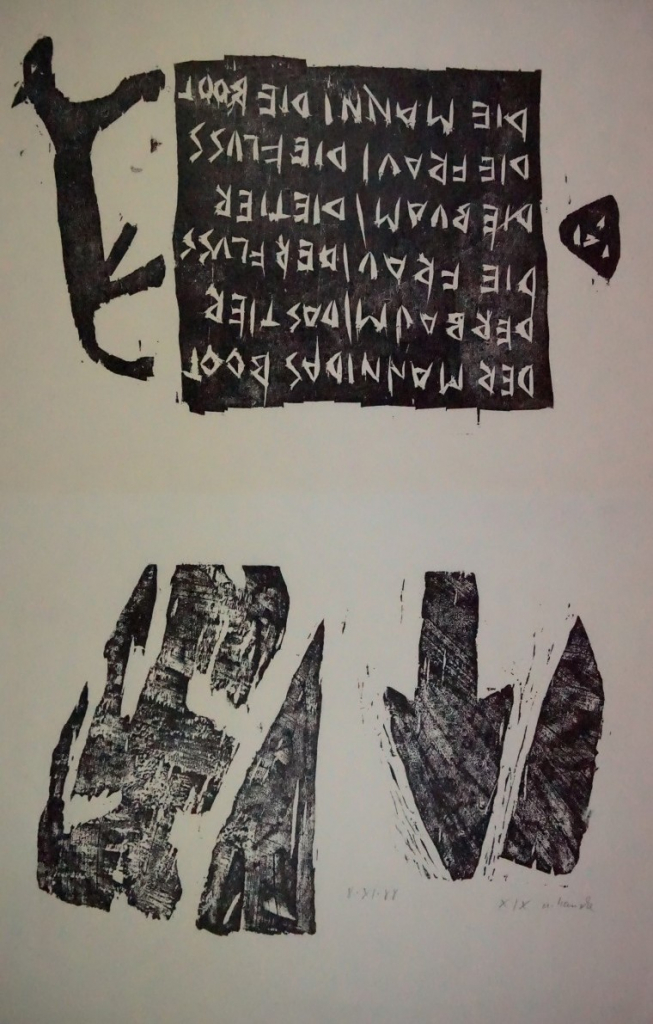 DIE MANN | DIE BOOT
DIE FRAU | DIE FLUSS
DIE BUAM | DIE TIER
DIE FRAU | DER FLUSS
DER BAUM | DAS TIER
DER MANN | DAS BOOT
8-31-88
X/X